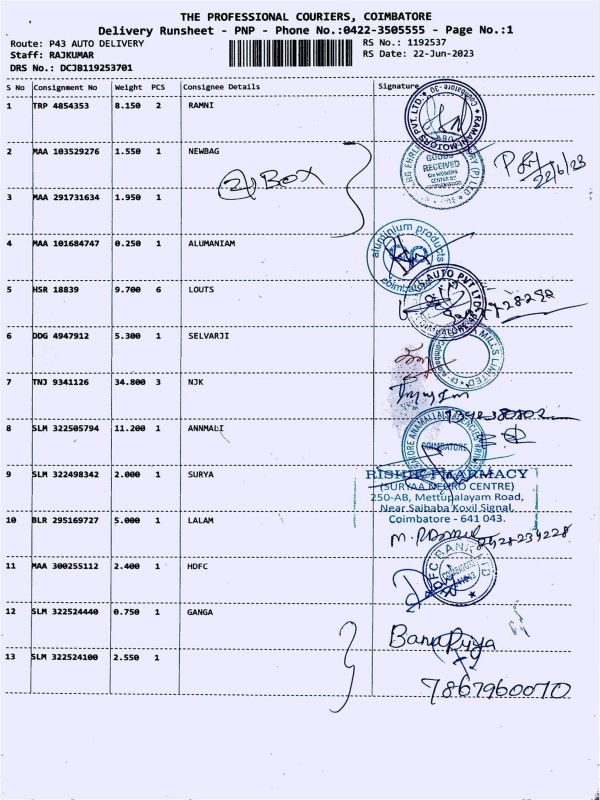 THE PROFESSIONAL COURIERS, COIMBATORE
Delivery Runsheet - PNP - Phone No.:0422-3505555 - Page No.:1
Route: P43 AUTO DELIVERY
RS No.: 1192537
Staff: RAJKUMAR
RS Date: 22-Jun-2023
DRS No.: DCJB119253701
S No Consignment No Weight PCS Consignee Details Signature
1 TRP 4854353 8.150 2 RAMNI
2 MAA 103529276 1.550 1 NEWBAG
GOODS RECEIVED
22/6/23
2 BOX
3 MAA 291731634 1.950 1
4 MAA 101684747 0.250 1 ALUMANIAM
aluminium products
coimbatore
5 HSR 18839 9.700 6 LOUTS
AUTO PVT LTD
6 DDG 4947912 5.300 1 SELVARJI
MILLS LIMITED
7 TNJ 9341126 34.800 3 NJK
8 SLM 322505794 11.200 1 ANNMALI
COIMBATORE
9 SLM 322498342 2.000 1 SURYA
PHARMACY
(SURYAA NEURO CENTRE)
250-AB, Mettupalayam Road,
Near Saibaba Kovil Signal,
Coimbatore - 641 043.
10 BLR 295169727 5.000 1 LALAM
11 MAA 300255112 2.400 1 HDFC
HDFC BANK LTD
12 SLM 322524440 0.750 1 GANGA
13 SLM 322524100 2.550 1
7867960070